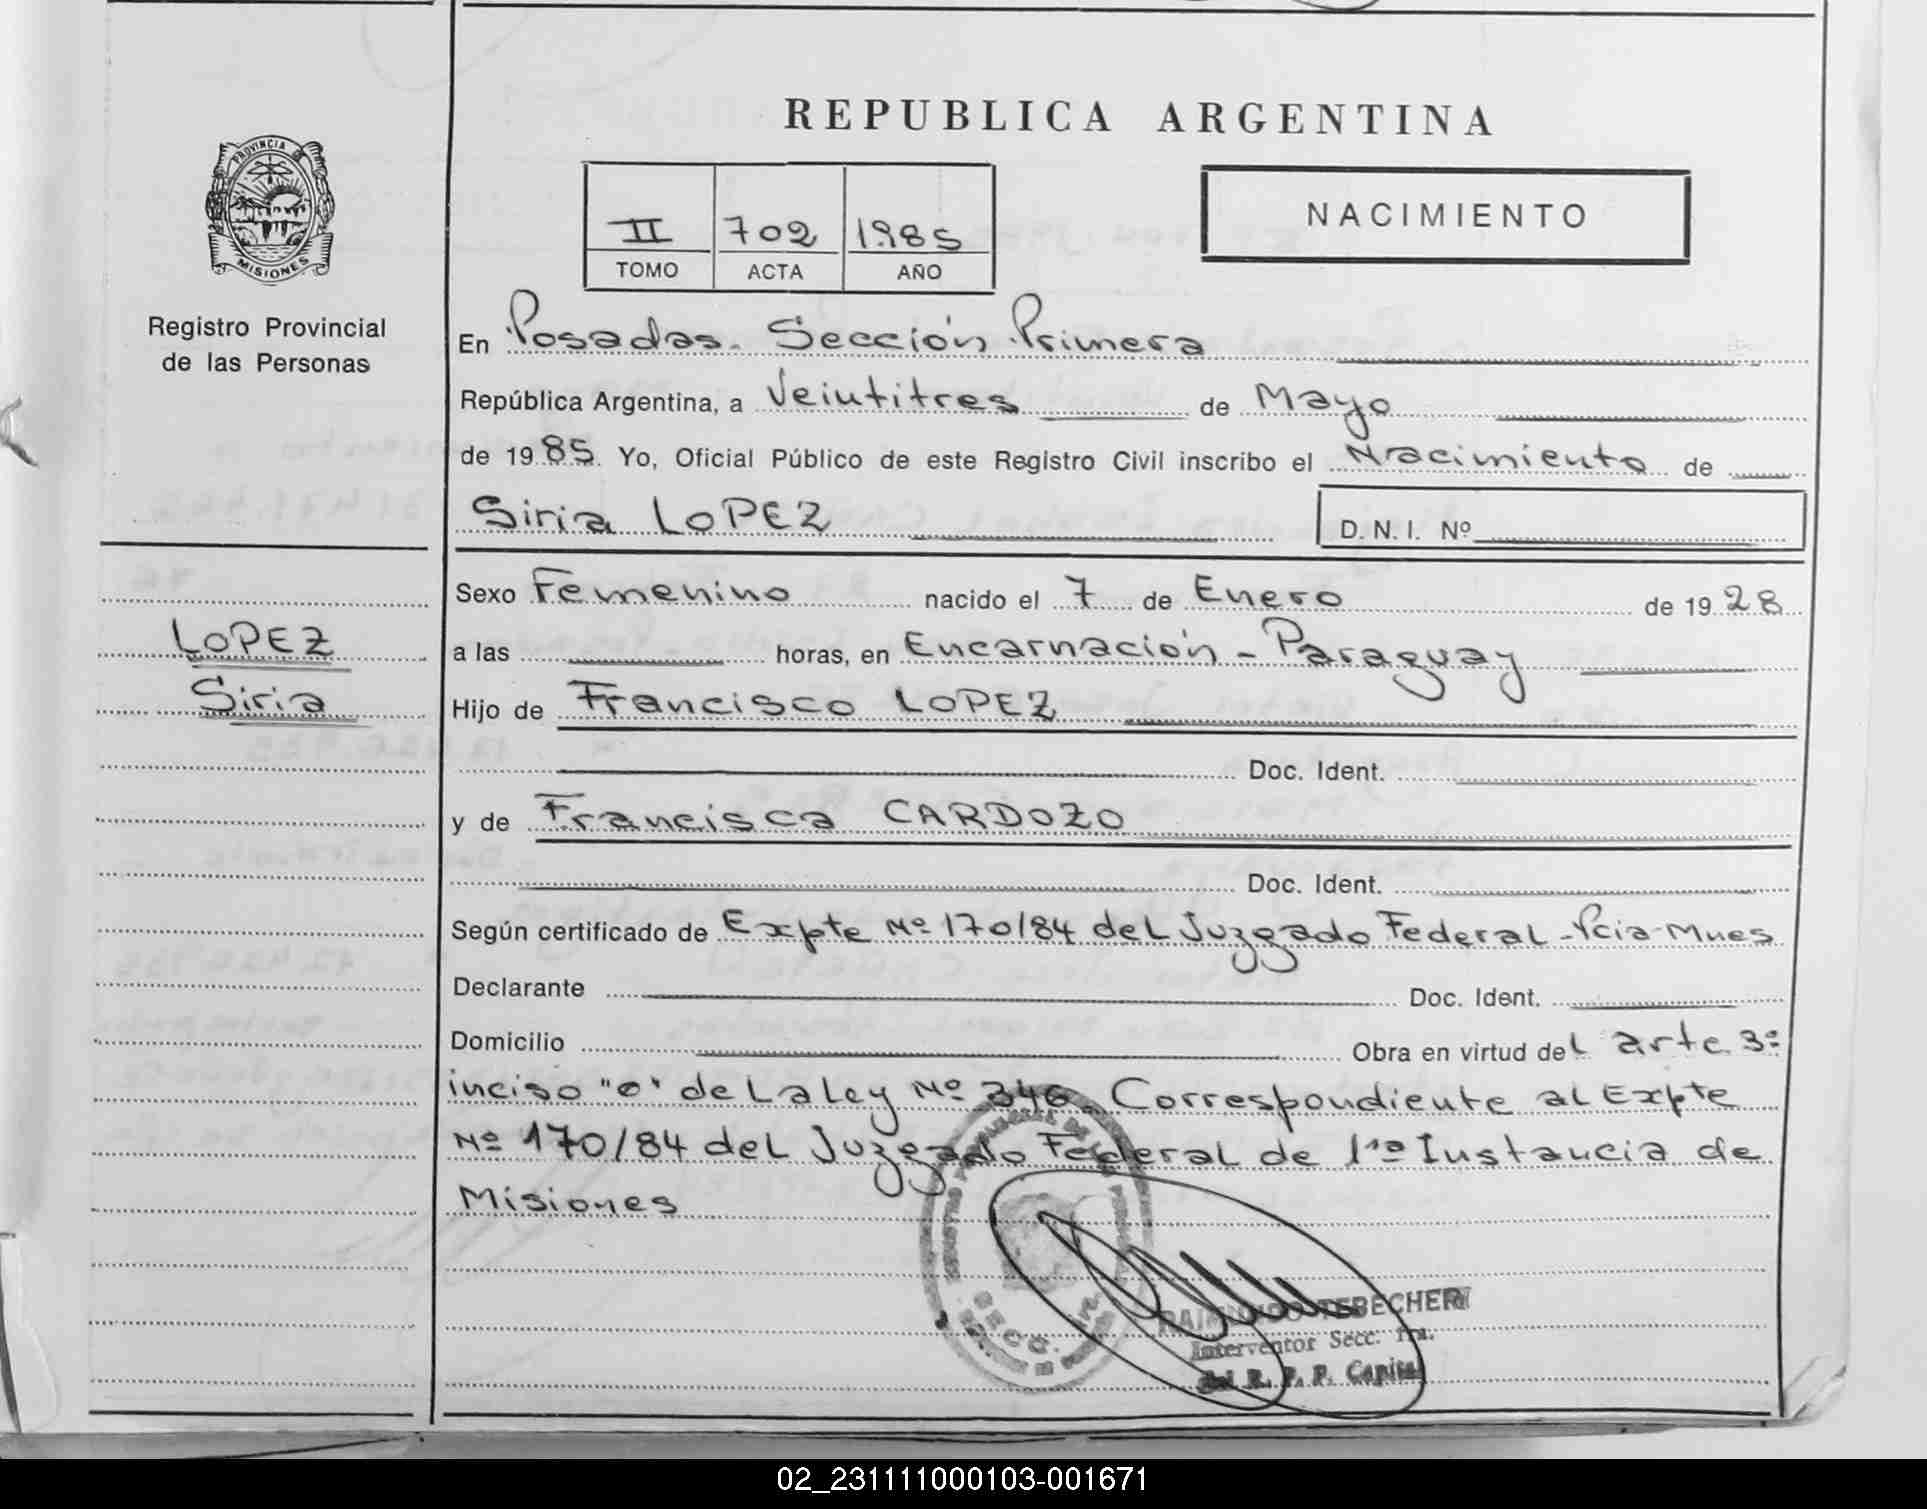 REPUBLICA ARGENTINA
PROVINCIA DE
MISIONES
Registro Provincial
de las Personas
II 702 1985
TOMO ACTA AÑO
NACIMIENTO
En Posadas. Sección Primera
República Argentina, a Veintitres de Mayo
de 1985. Yo, Oficial Público de este Registro Civil inscribo el Nacimiento de
Siria LOPEZ D. N. I. Nº
LOPEZ
Siria
Sexo Femenino nacido el 7 de Enero de 1928
a las horas, en Encarnación - Paraguay
Hijo de Francisco LOPEZ
Doc. Ident.
y de Francisca CARDOZO
Doc. Ident.
Según certificado de Expte Nº 170/84 del Juzgado Federal - Pcia Mnes
Declarante Doc. Ident.
Domicilio Obra en virtud del arte 3º
inciso de La Ley Nº 346. Correspondiente al Expte
Nº 170/84 del Juzgado Federal de 1ra Instancia de
Misiones
SECC.
RAIMUNDO TEBECHERI
Interventor Secc. 1ra.
del R. P. P. Capital
02_231111000103-001671